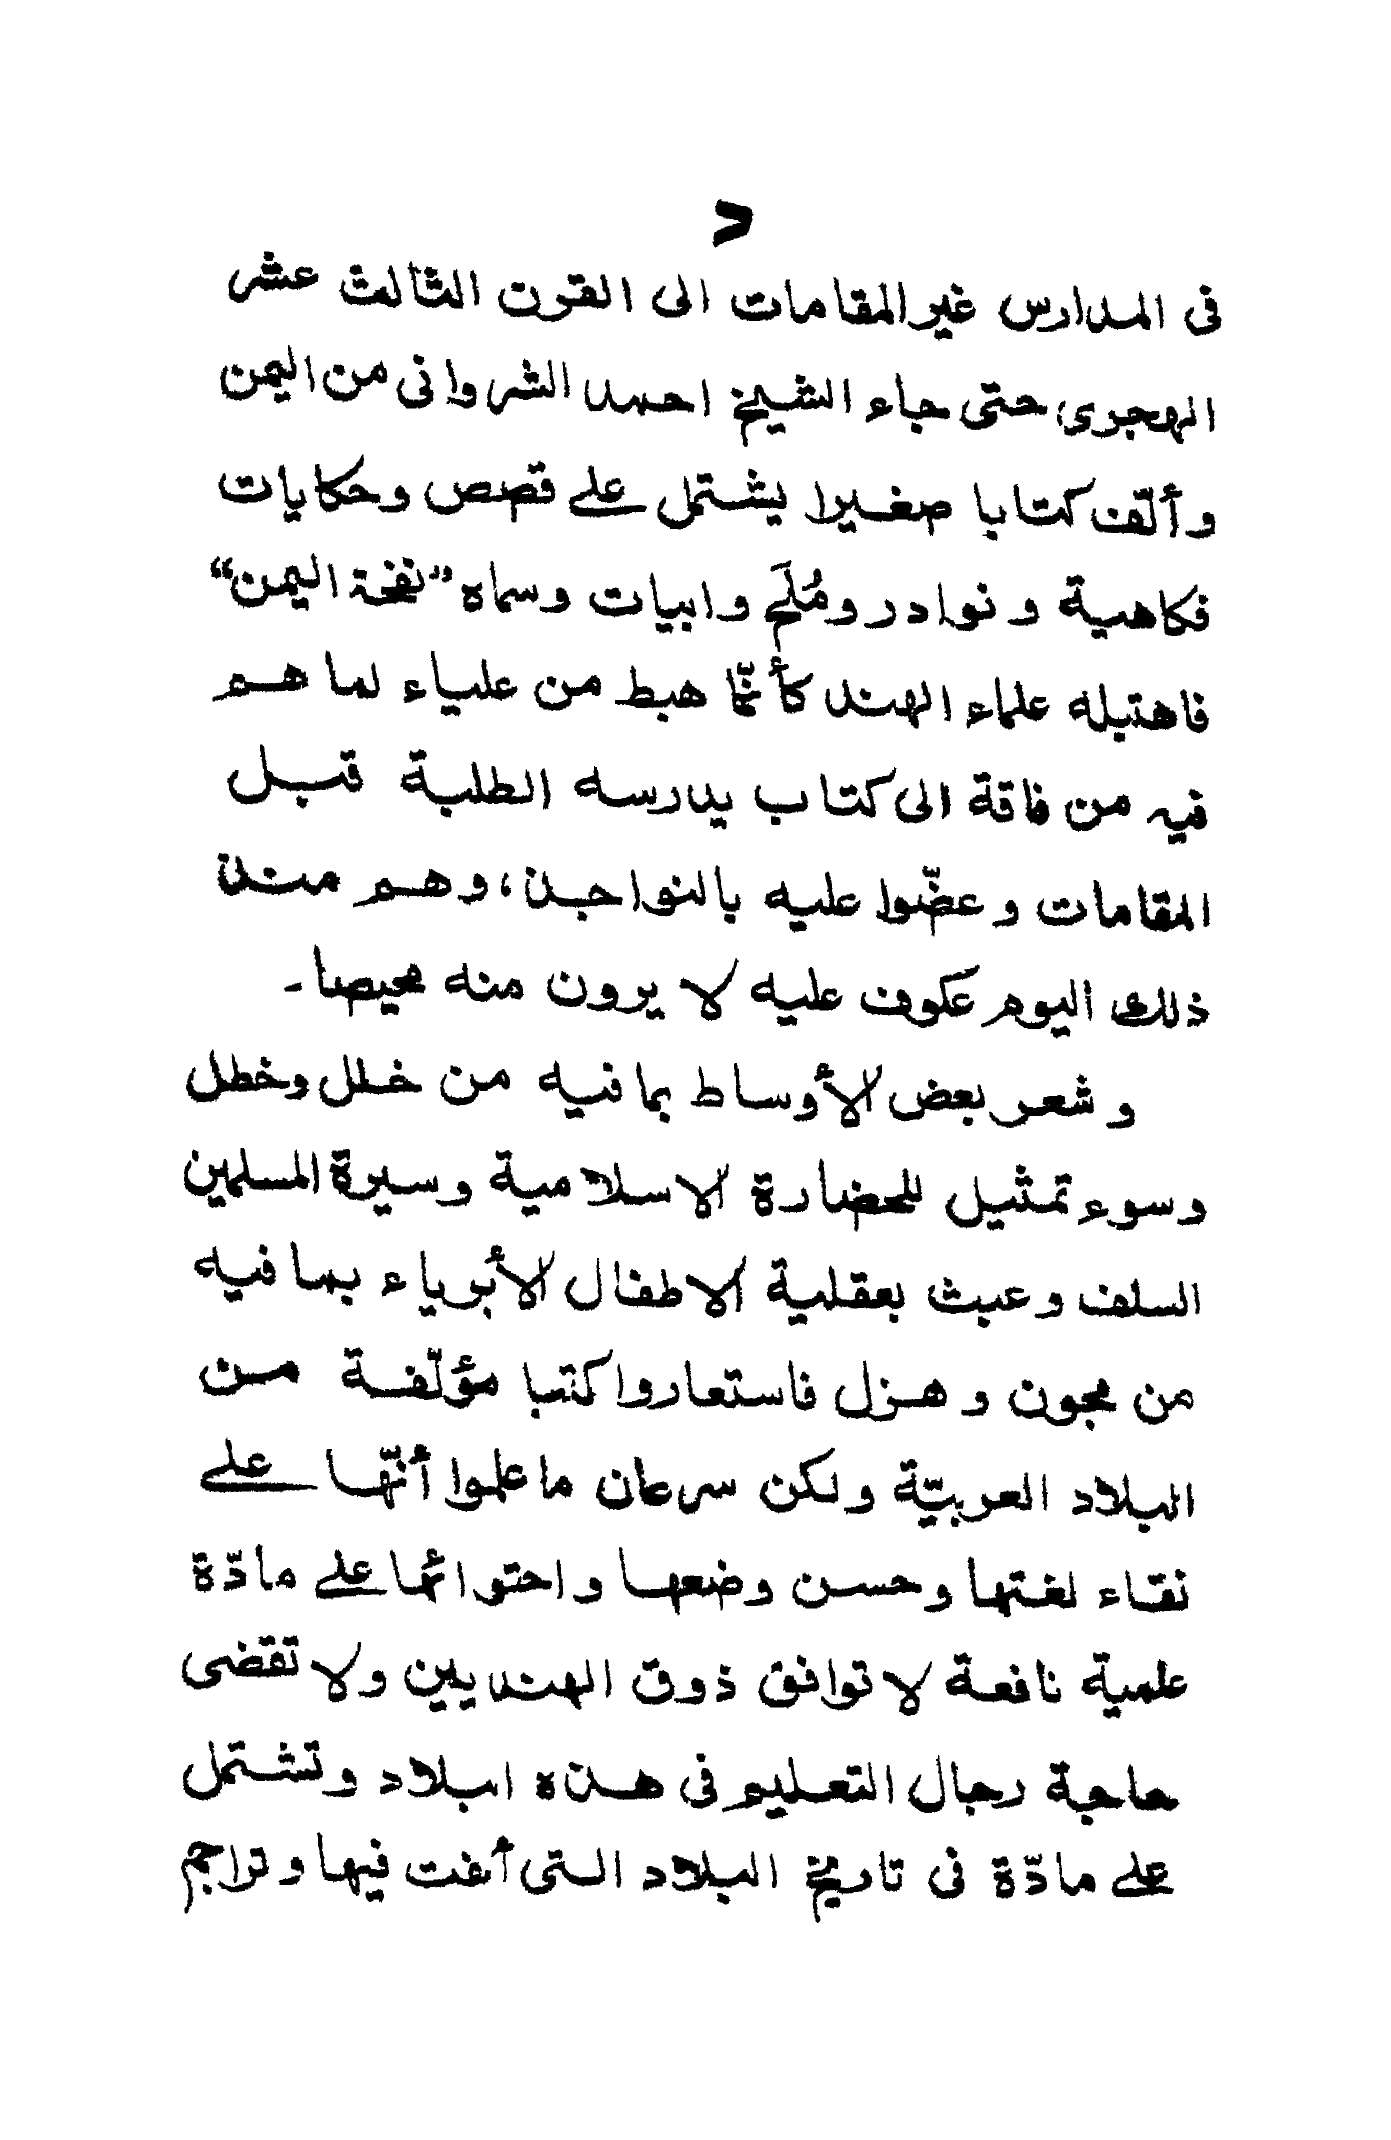 د
فى المدارس غير المقامات الى القرن الثالث عشر
الهجرى حتى جاء الشيخ احمد الشروانى من اليمن
وألّف كتابا صغيرا يشتمل على قصص وحكايات
فكاهية و نوادر ومُلَح وابيات وسماه "نفحة اليمن"
فاهتبله علماء الهند كأنّما هبط من علياء لما هم
فيه من فاقة الى كتاب يدارسه الطلبة قبل
المقامات وعضّوا عليه بالنواجذ، وهم منذ
ذلك اليوم عكوف عليه لا يرون منه محيصا۔
وشعر بعض الأوساط بما فيه من خلل وخطل
وسوء تمثيل للحضارة الاسلامية وسيرة المسلمين
السلف وعبث بعقلية الاطفال الأبرياء بما فيه
من مجون و هزل فاستعاروا كتبا مؤلّفة من
البلاد العربيّة ولكن سرعان ما علموا أنّها على
نقاء لغتها وحسن وضعها واحتوائها على مادّة
علمية نافعة لا توافق ذوق الهنديين ولا تقضى
حاجة رجال التعليم فى هذه ابلاد وتشتمل
على مادّة فى تاريخ البلاد التى ألفت فيها وتراجم